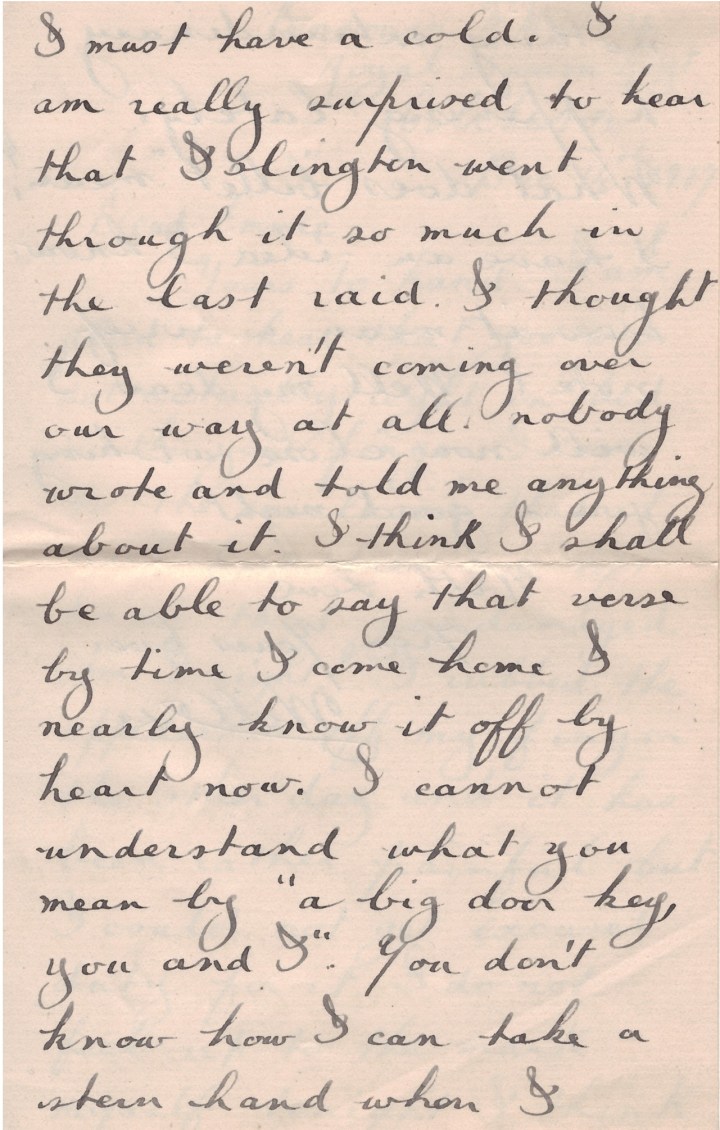 I must have a cold. I
am really surprised to hear
that Islington went
through it so much in
the last raid. I thought
they weren't coming over
our way at all. nobody
wrote and told me anything
about it. I think I shall
be able to say that verse
by time I come home I
nearly know it off by
heart now. I cannot
understand what you
mean by "a big door key,
you and I". You don't
know how I can take a
stern hand when I